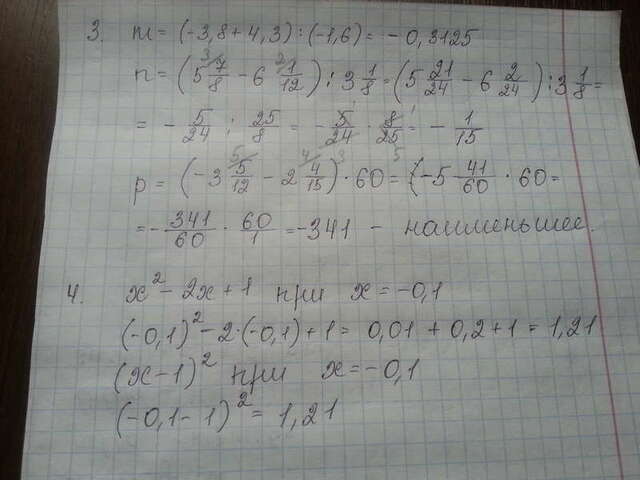 3. m = (-3,8+4,3):(-1,6) = -0,3125
n = (5 7/8 - 6 1/12) : 3 1/8 = (5 21/24 - 6 2/24) : 3 1/8 =
= - 5/24 : 25/8 = - 5/24 · 8/25 = - 1/15
p = (-3 5/12 - 2 4/15) · 60 = (-5 41/60 · 60 =
= - 341/60 · 60/1 = -341 - наименьшее.
4. x² - 2x + 1 при x = -0,1
(-0,1)² - 2·(-0,1) + 1 = 0,01 + 0,2 + 1 = 1,21
(x-1)² при x = -0,1
(-0,1-1)² = 1,21